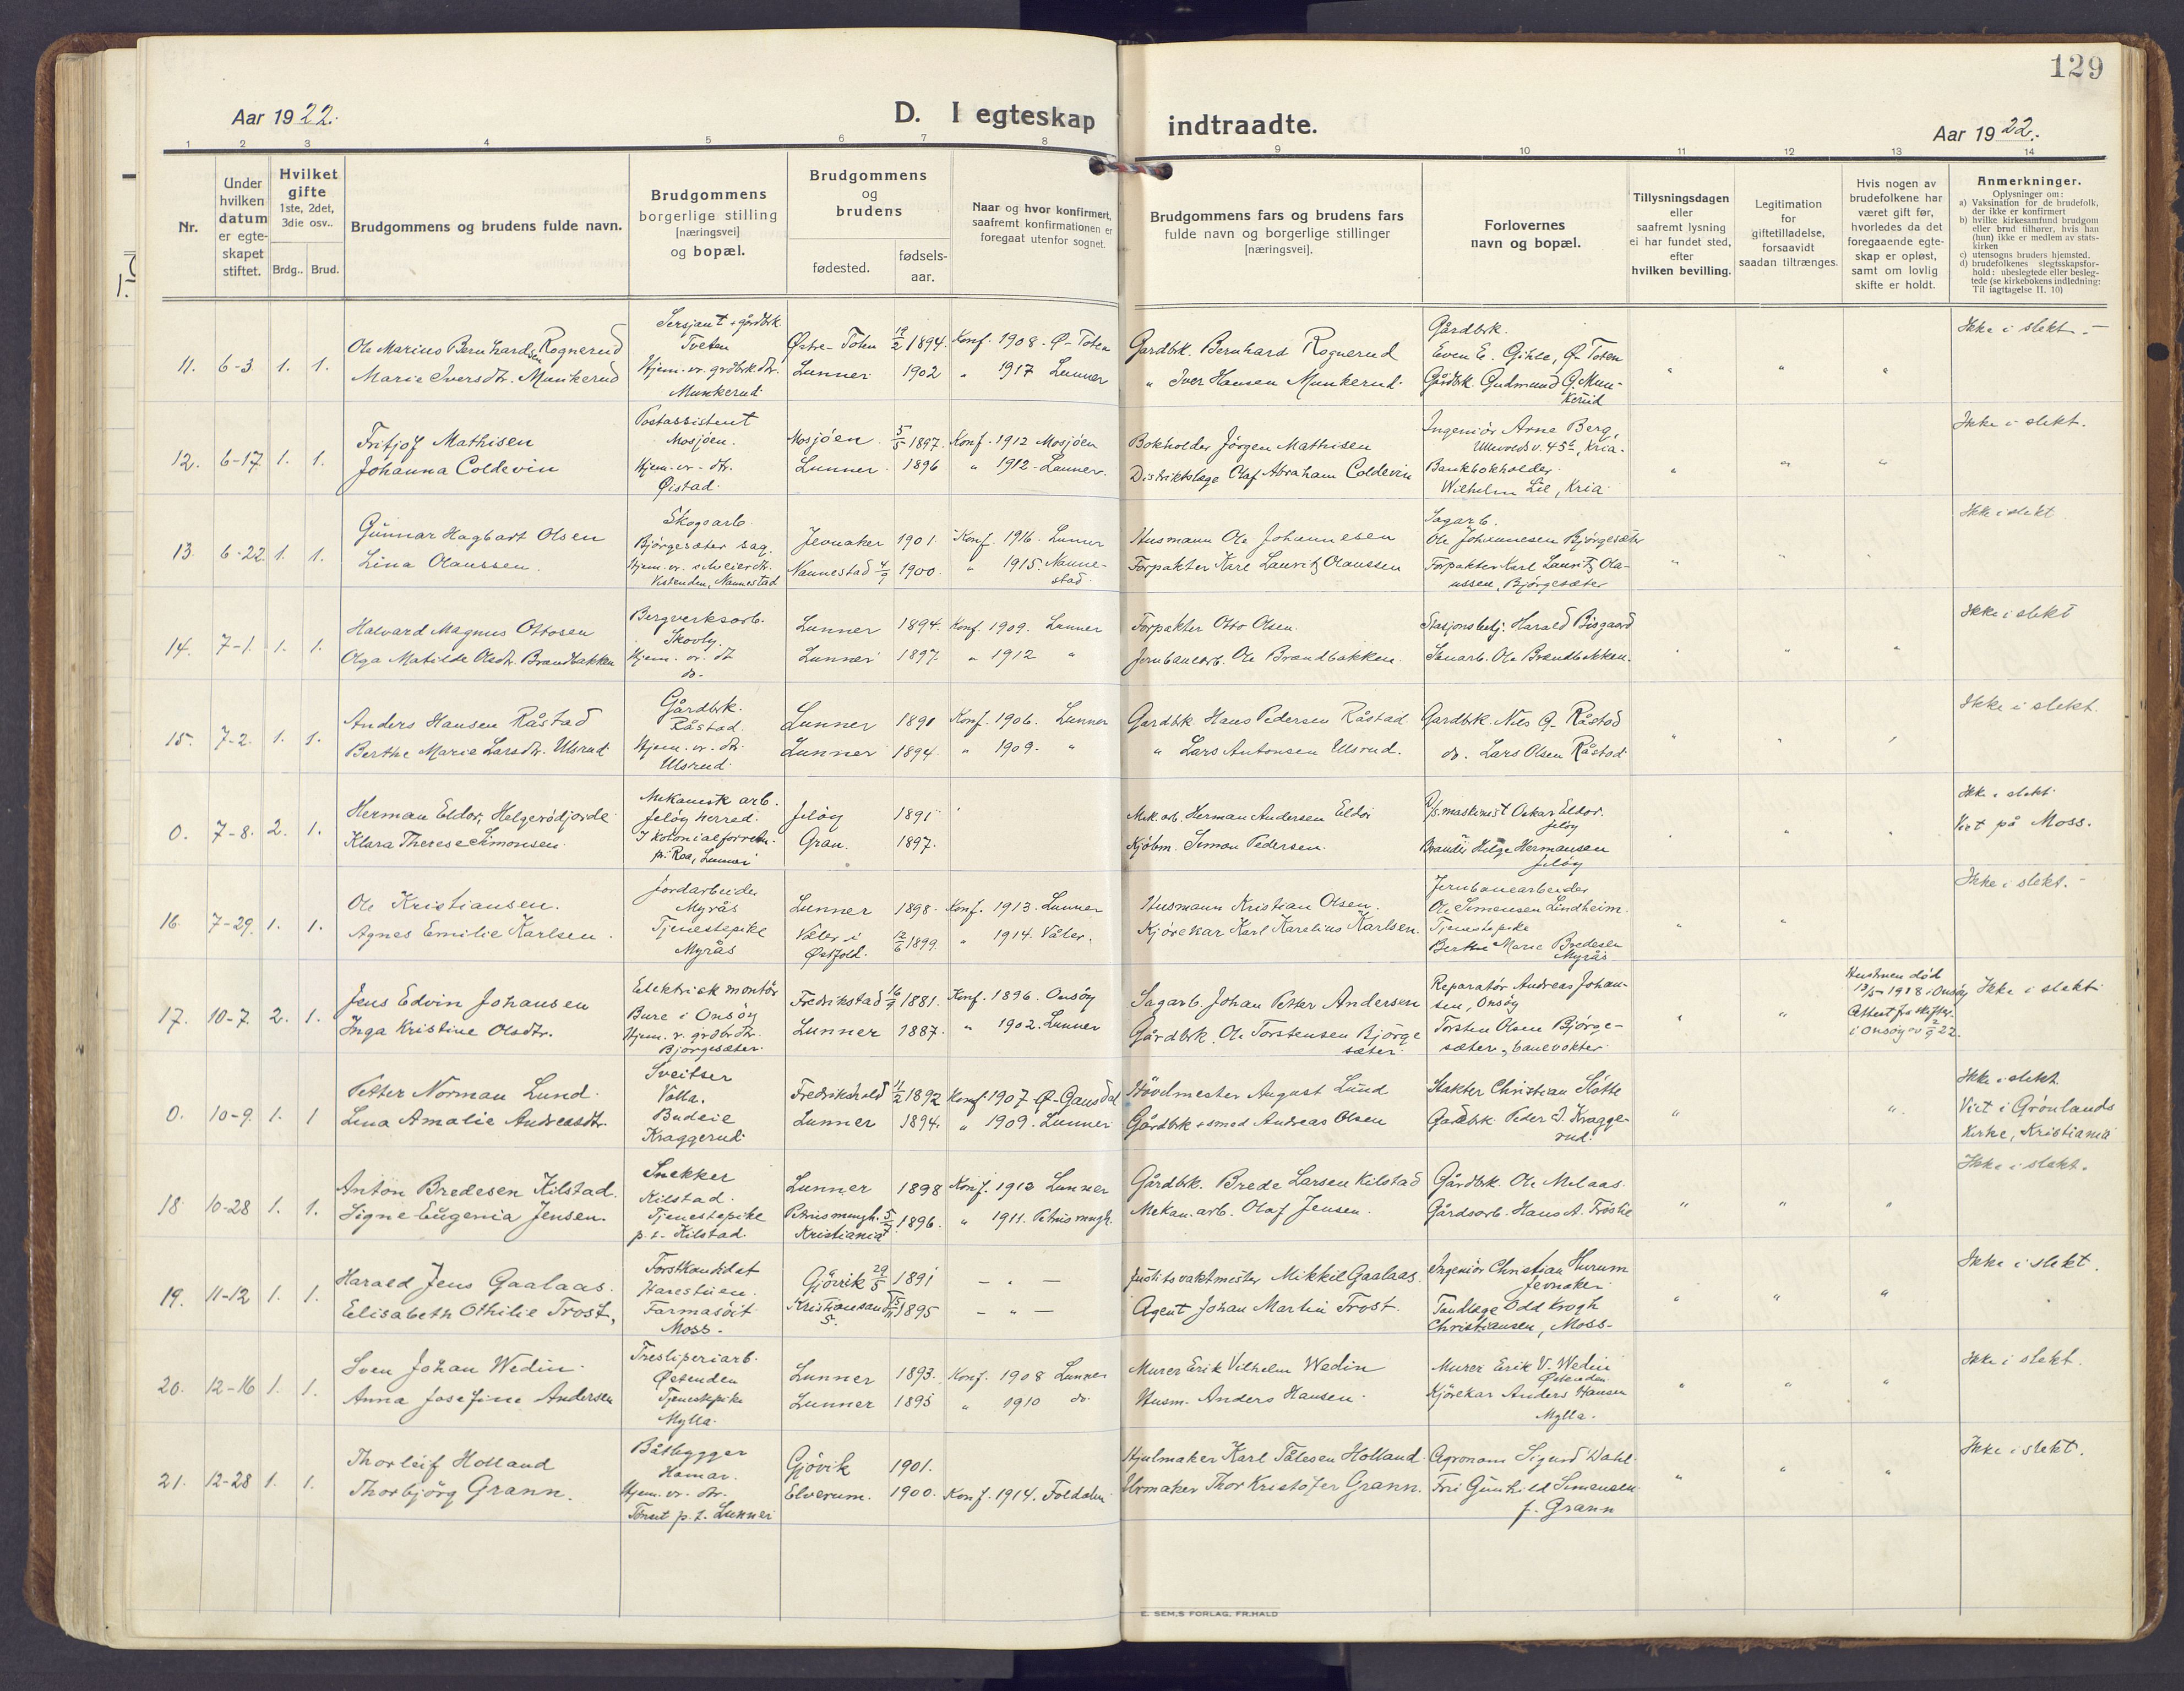 129
Aar 1922.
D. I egteskap indtraadte.
Aar 1922.
1 2 3 4 5 6 7 8 9 10 11 12 13 14
Nr.
Under hvilken datum er egte-skapet stiftet.
Hvilket gifte 1ste, 2det, 3die osv..
Brdg.. Brud.
Brudgommens og brudens fulde navn.
Brudgommens borgerlige stilling [næringsvei] og bopæl.
Brudgommens og brudens
fødested. fødsels-aar.
Naar og hvor konfirmert, saafremt konfirmationen er foregaat utenfor sognet.
Brudgommens fars og brudens fars fulde navn og borgerlige stillinger [næringsvei].
Forlovernes navn og bopæl.
Tillysningsdagen eller saafremt lysning ei har fundet sted, efter hvilken bevilling.
Legitimation for giftetilladelse, forsaavidt saadan tiltrænges.
Hvis nogen av brudefolkene har været gift før, hvorledes da det foregaaende egte-skap er opløst, samt om lovlig skifte er holdt.
Anmerkninger.
Oplysninger om:
a) Vaksination for de brudefolk, der ikke er konfirmert
b) hvilke kirkesamfund brudgom eller brud tilhører, hvis han (hun) ikke er medlem av stats-kirken
c) utensogns bruders hjemsted.
d) brudefolkenes slegtsskapsfor-hold: ubeslegtede eller besleg-tede (se kirkebokens indledning: Til iagttagelse II. 10)
11. 6-3. 1. 1.
Ole Marius Bernhardsen Rognerud
Marie Iversdtr. Munkerud
Sersjant + gårdbrk. Tveten
Hjem. vr. grdbrk dtr. Munkerud
Østre-Toten 19/2 1894. Konf. 1908. Ø-Toten
Lunner 1902 " 1917 Lunner
Gardbrk. Bernhard Rognerud
" Iver Hansen Munkerud.
Gårdbrk. Even E. Gihle, Ø-Toten
Gårdbrk. Gudmund G. Munkerud
Ikke i slekt.
12. 6-17. 1. 1.
Fritjof Mathisen
Johanna Coldevin
Postassistent Mosjöen.
Hjem. vr. dtr. Øistad.
Mosjöen 5/5 1897. Konf. 1912 Mosjöen
Lunner. 1896 " 1912. Lunner.
Bokholder Jörgen Mathisen
Distriktslæge Olaf Abraham Coldevin
Ingeniör Arne Berg, Ullevolds v. 45, Kria.
Bankbokholder Wilhelm Lie, Kria.
Ikke i slekt.
13. 6-22. 1. 1.
Gunnar Hagbart Olsen
Lina Olaussen.
Skogsarb. Bjørgesæter sag.
Hjem. vr. dtr. Nannestad
Jevnaker 1901. Konf. 1916. Lunner
Nannestad 4/9 1900. " 1915. Nannestad.
Husmann Ole Johannesen
Forpakter Karl Lauritz Olaussen
Sagarb. Ole Johannesen Bjørgesæter
Forpakter Karl Lauritz Olaussen, Bjørgesæter
Ikke i slekt
14. 7-1. 1. 1.
Halvard Magnus Ottosen
Olga Matilde Olsdtr. Brandbakken
Bergverksarb. Skovly.
Hjem. vr. dt do.
Lunner 1894. Konf. 1909. Lunner
Lunner 1897. " 1912 "
Forpakter Otto Olsen.
Jernbanearb. Ole Brandbakken.
Stasjonsbetj. Harald Bisgaard
Ole Brandbakken.
Ikke i slekt
15. 7-2. 1. 1.
Anders Hansen Råstad
Berthe Marie Larsdtr. Ulsrud.
Gårdbrk. Råstad.
Hjem. vr. dtr. Ulsrud.
Lunner 1891 Konf. 1906. Lunner
Lunner 1894. " 1909. "
Gardbk. Hans Pedersen Råstad
" Lars Antonsen Ulsrud.
Gardbrk. Nils G. Råstad
do. Lars Olsen Råstad.
Ikke i slekt.
0. 7-8. 2. 1.
Herman Eldor, Helgerödjorde
Klara Therese Simonsen.
Mekanisk arb. Jelöy herred.
I kolonialforretn. pr. Roa, Lunner
Jelöy 1891
Gran. 1897.
Mek. arb. Herman Andersen Eldör
Kjöbm. Simon Pedersen.
maskinist Oskar Eldor. Jelöy
Helge Hermansen Jelöy
Ikke i slekt.
Viet på Moss.
16. 7-29. 1. 1.
Ole Kristiansen.
Agnes Emilie Karlsen.
Jordarbeider Myrås
Tjenestepike Myrås
Lunner 1898. Konf. 1913. Lunner
Våler i Østfold. 12/6 1899. " 1914. Våler.
Husmann Kristian Olsen.
Kjörekar Karl Karelius Karlsen.
Jernbanearbeider Ole Simensen Lindheim.
Tjenestepike Berthe Marie Bredesen Myrås
Ikke i slekt.
17. 10-7. 2. 1.
Jens Edvin Johansen
Inga Kristine Olsdtr.
Elektrisk montör Bure i Onsöy
Hjem. v. grdbr. dtr. Bjørgesæter.
Fredrikstad 16/7 1881. Konf. 1896. Onsöy
Lunner 1887. " 1902. Lunner
Sagarb. Johan Petter Andersen
Gårdbrk. Ole Torstensen Bjørgesæter.
Reparatör Andreas Johansen, Onsöy
Torsten Olsen Bjørgesæter, banevokter
Hustruen död 13/5-1918 i Onsöy
Attest fra skifter. i Onsöy av 2/9 22.
Ikke i slekt.
0. 10-9. 1. 1
Petter Norman Lund.
Lina Amalie Andreasdtr.
Sveitser Volla.
Budeie Kraggerud.
Fredrikshald 11/2 1892 Konf. 1907 Ø-Gausdal
Lunner 1894. " 1909. Lunner
Hövelmester August Lund
Gårdbrk + smed Andreas Olsen
Christian Slåtte
Gardbk. Peder J. Kraggerud.
Ikke i slekt.
Viet i Grønlands Kirke, Kristiania
18. 10-28 1. 1.
Anton Bredesen Kilstad.
Signe Eugenia Jensen.
Snekker Kilstad.
Tjenestepike p.t. Kilstad.
Lunner 1898 Konf. 1913 Lunner
Petrismengh. Kristiania 5/7 1896. " 1911. Petrismengh.
Gårdbrk. Brede Larsen Kilstad
Mekan. arb. Olaf Jensen.
Gårdbrk. Ole Melaas.
Gårdsarb. Hans A. Fröslie
Ikke i slekt.
19. 11-12 1. 1.
Harald Jens Gaalaas.
Elisabeth Othilie Trost,
Forstkandidat Harestuen.
Farmasöit Moss.
Gjövik 29/5 1891 — " —
Kristiansand S. 1895 — " —
Justitsvaktmester Mikkel Gaalaas.
Agent Johan Martin Trost.
Ingeniör Christian Hurum Jevnaker
Tandlæge Odd Krogh Christiansen, Moss.
Ikke i slekt.
20. 12-16 1. 1.
Sven Johan Wedin.
Anna Josefine Andersen
Tresliperiarb. Østenden
Tjenestepike Mylla.
Lunner 1893. Konf. 1908 Lunner
Lunner 1895 " 1910 do.
Murer Erik Vilhelm Wedin
Husm. Anders Hansen.
Murer Erik V. Wedin Østenden.
Kjörekar Anders Hansen Mylla.
Ikke i slekt.
21. 12-28 1. 1.
Thorleif Holland
Thorbjörg Grann.
Båtbygger Hamar.
Hjem. vr. dtr. Tönset p.t. Lunner
Gjövik 1901.
Elverum. 1900. Konf. 1914. Foldalen
Hjulmaker Karl Tålesen Holland.
Urmaker Thor Kristofer Grann.
Agronom Sigurd Dahl.
Fru Gunhild Simensen f. Grann
Ikke i slekt.
E. SEM,S FORLAG, FR.HALD